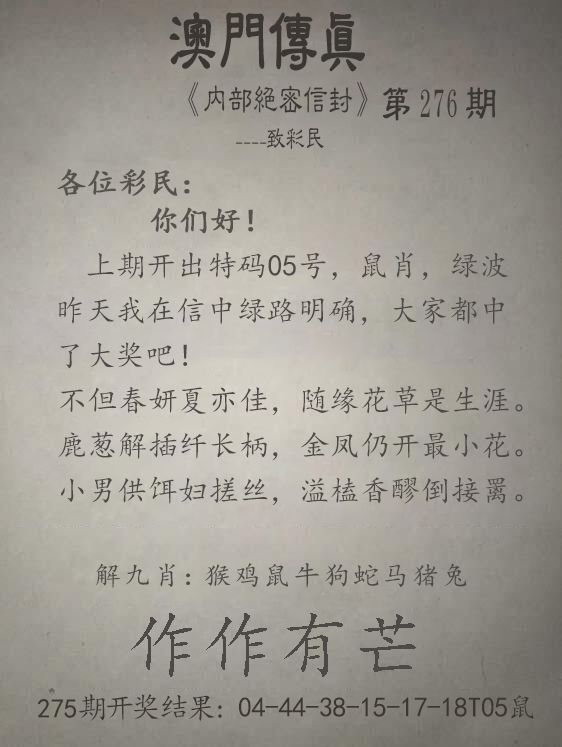 澳門傳眞
《内部絕密信封》第276期
----致彩民
各位彩民：
你们好！
上期开出特码05号，鼠肖，绿波
昨天我在信中绿路明确，大家都中
了大奖吧！
不但春妍夏亦佳，随缘花草是生涯。
鹿葱解插纤长柄，金凤仍开最小花。
小男供饵妇搓丝，溢榼香醪倒接罱。
解九肖：猴鸡鼠牛狗蛇马猪兔
作作有芒
275期开奖结果：04-44-38-15-17-18T05鼠